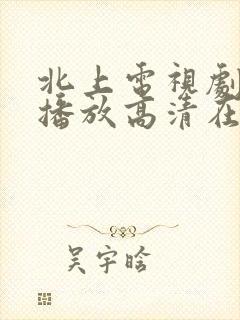 北上電視劇
播放高清在
吴宇晗